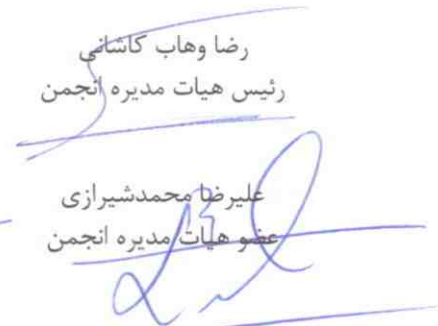 رضا وهاب کاشانی
رئیس هیات مدیره انجمن
علیرضا محمدشیرازی
عضو هیات مدیره انجمن